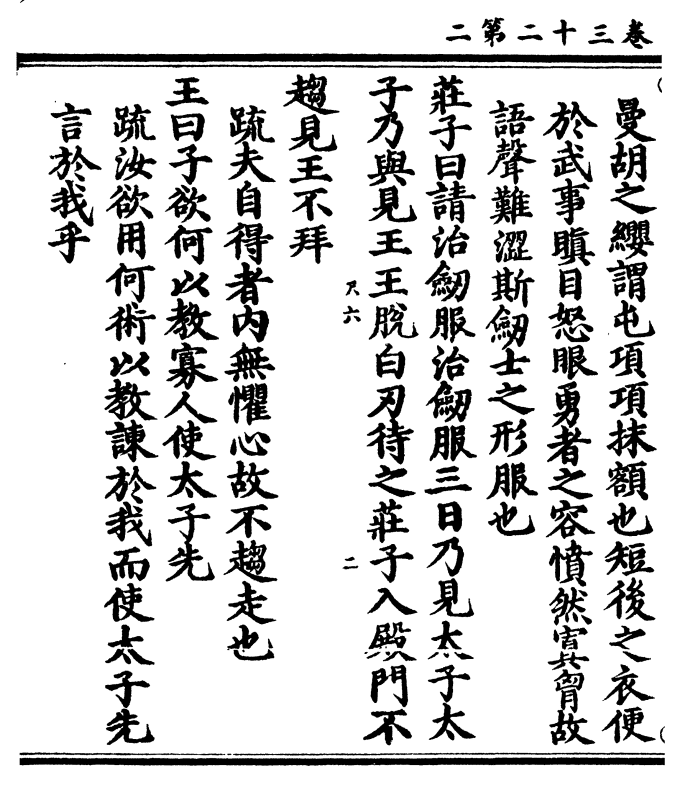 卷三十二第二
曼胡之纓謂屯項項抹額也短後之衣便
於武事瞋目怒眼勇者之容憤然寘𦚾故
語聲難澀斯劒士之形服也
莊子曰請治劒服治劒服三日乃見太子太
子乃與見王王脫白刃待之莊子入殿門不
趨見王不拜
疏夫自得者內無懼心故不趨走也
王曰子欲何以教寡人使太子先
疏汝欲用何術以教諫於我而使太子先
言於我乎
尺六
二